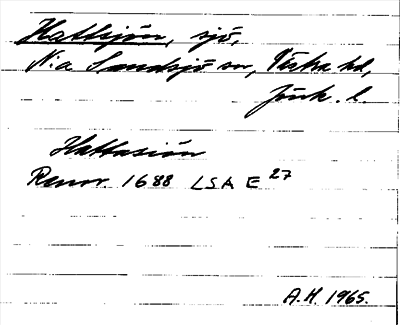 Hattsjön, sjö,
N:a Sandsjö sn, Västra hd,
Jönk. l.
Hattasiön
Renov. 1688 LSA E 27
A.H. 1965.